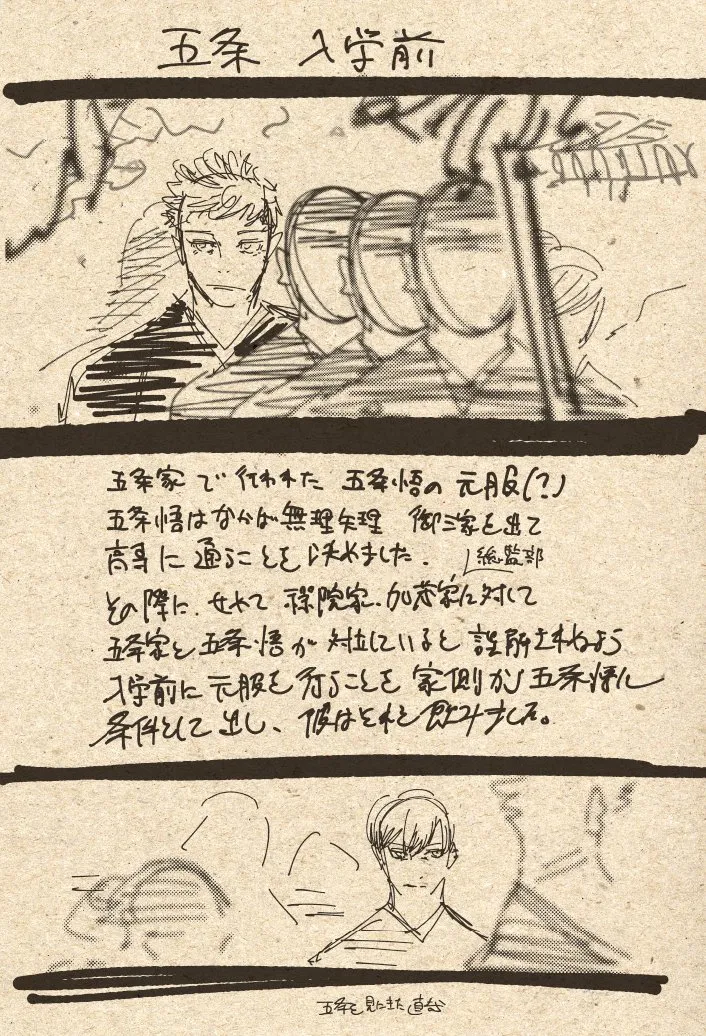 五条 入学前
五条家で行われた 五条悟の元服(?)
五条悟はなかば無理矢理 御三家を出て
高専に通うことを決めました。
総監部
その際に、せめて 禪院家、加茂家に対して
五条家と五条悟が対立していると誤解されぬよう
入学前に元服を行うことを家側が五条悟に
条件として出し、彼はそれを飲みました。
五条を見にきた直哉